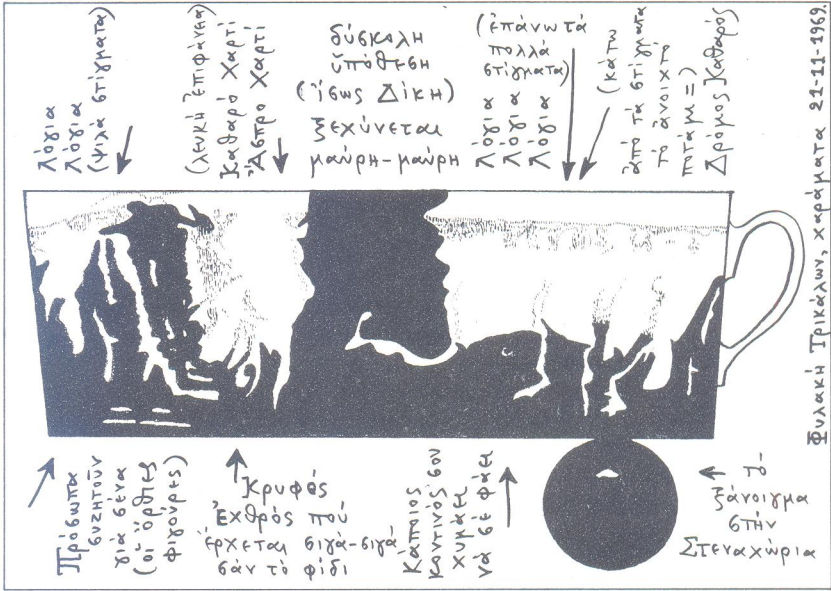 Λόγια
Λόγια
(ψιλά στίγματα)
(λευκή ἐπιφάνεια)
Καθαρό Χαρτί
Ἄσπρο Χαρτί
δύσκολη
ὑπόθεση
(ἴσως Δίκη)
ξεχύνεται
μαύρη-μαύρη
(ἐπάνω τά
πολλά
στίγματα)
Λόγια
Λόγια
Λόγια
(κάτω
ἀπό τά στίγματα
τό ἀνοιχτό
ποτάμι =)
Δρόμος Καθαρός
Φυλακή Τρικάλων, χαράματα 21-11-1969.
Πρόσωπα
συζητοῦν
γιά σένα
(οἱ ὄρθιες
φιγοῦρες)
Κρυφός
Ἐχθρός πού
ἔρχεται σιγά-σιγά
σάν τό φίδι
Κάποιος
κοντινός σου
χυμάει
νά σέ φάει
τό
ξάνοιγμα
στήν
Στεναχώρια